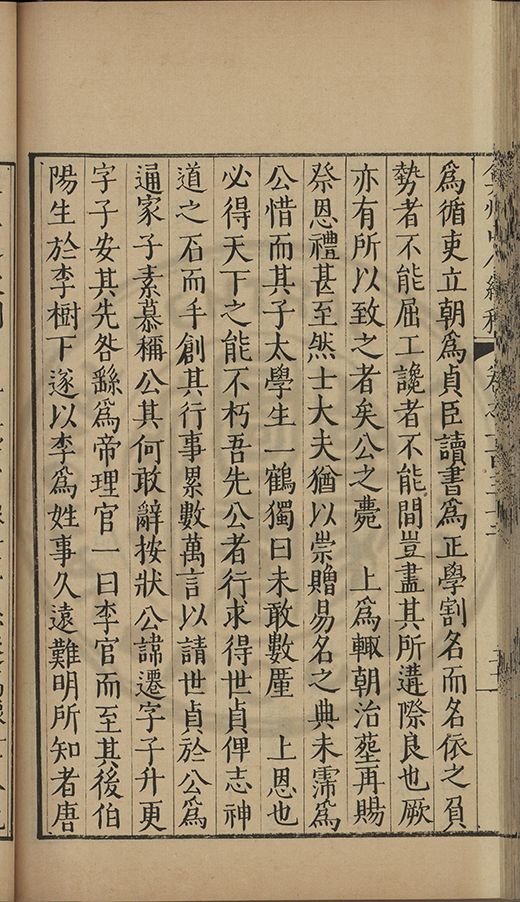 為循吏立朝為貞臣讀書為正學割名而名依之負
勢者不能屈工讒者不能間豈盡其所遘際良也厥
亦有所以致之者矣公之薨　上為輟朝治塟再賜
祭恩禮甚至然士大夫猶以崇贈易名之典未霈為
公惜而其子太學生一鶴獨曰未敢數厪　上恩也
必得天下之能不朽吾先公者行求得世貞俾志神
道之石而手創其行事累數萬言以請世貞於公為
通家子素慕稱公其何敢辭按狀公諱遷字子升更
字子安其先咎繇為帝理官一曰李官而至其後伯
陽生於李樹下遂以李為姓事久遠難明所知者唐